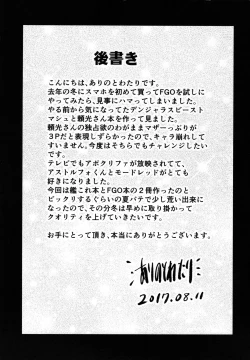 後書き
こんにちは、ありのとわたりです。
去年の冬にスマホを初めて買ってFGOを試しに
やってみたら、見事にハマってしまいました。
やる前から気になってたデンジャラスビースト
マシュと頼光さん本を作って見ました。
頼光さんの独占欲のわがままマザーっぷりが
3Pだと表現しずらかったので、キャラ崩してし
すいません。今度はそちらでもチャレンジしたい
です。
テレビでもアポクリファが放映されてて、
アストルフォくんとモードレッドがとても
好きになりました。
今回は艦これ本とFGO本の2冊作ったのと
ビックリするぐらいの夏バテで少し荒い出来に
なったので、その分冬は早めに取り掛かって
クオリティを上げていきたいです。
お手にとって頂き、本当にありがとうございます。
ありのとわたり
2017.08.11